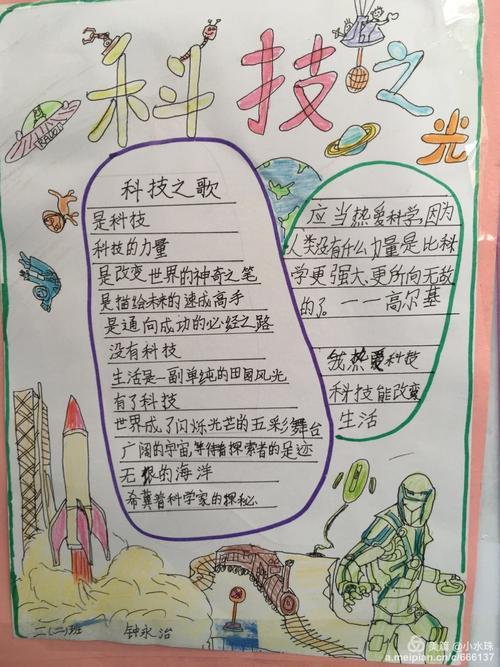 科技之光
科技之歌
是科技
科技的力量
是改变世界的神奇之笔
是描绘未来的速成高手
是通向成功的必经之路
没有科技
生活是一副单纯的田园风光
有了科技
世界成了闪烁光芒的五彩舞台
广阔的宇宙,等待着探索者的足迹
无垠的海洋
希冀着科学家的探秘
应当热爱科学,因为
人类没有什么力量是比科
学更强大、更所向无敌
的了。——高尔基
我热爱科技
科技能改变
生活
二(二)班 钟永治
美篇 @小水珠
a.meipian.cn/c/666137